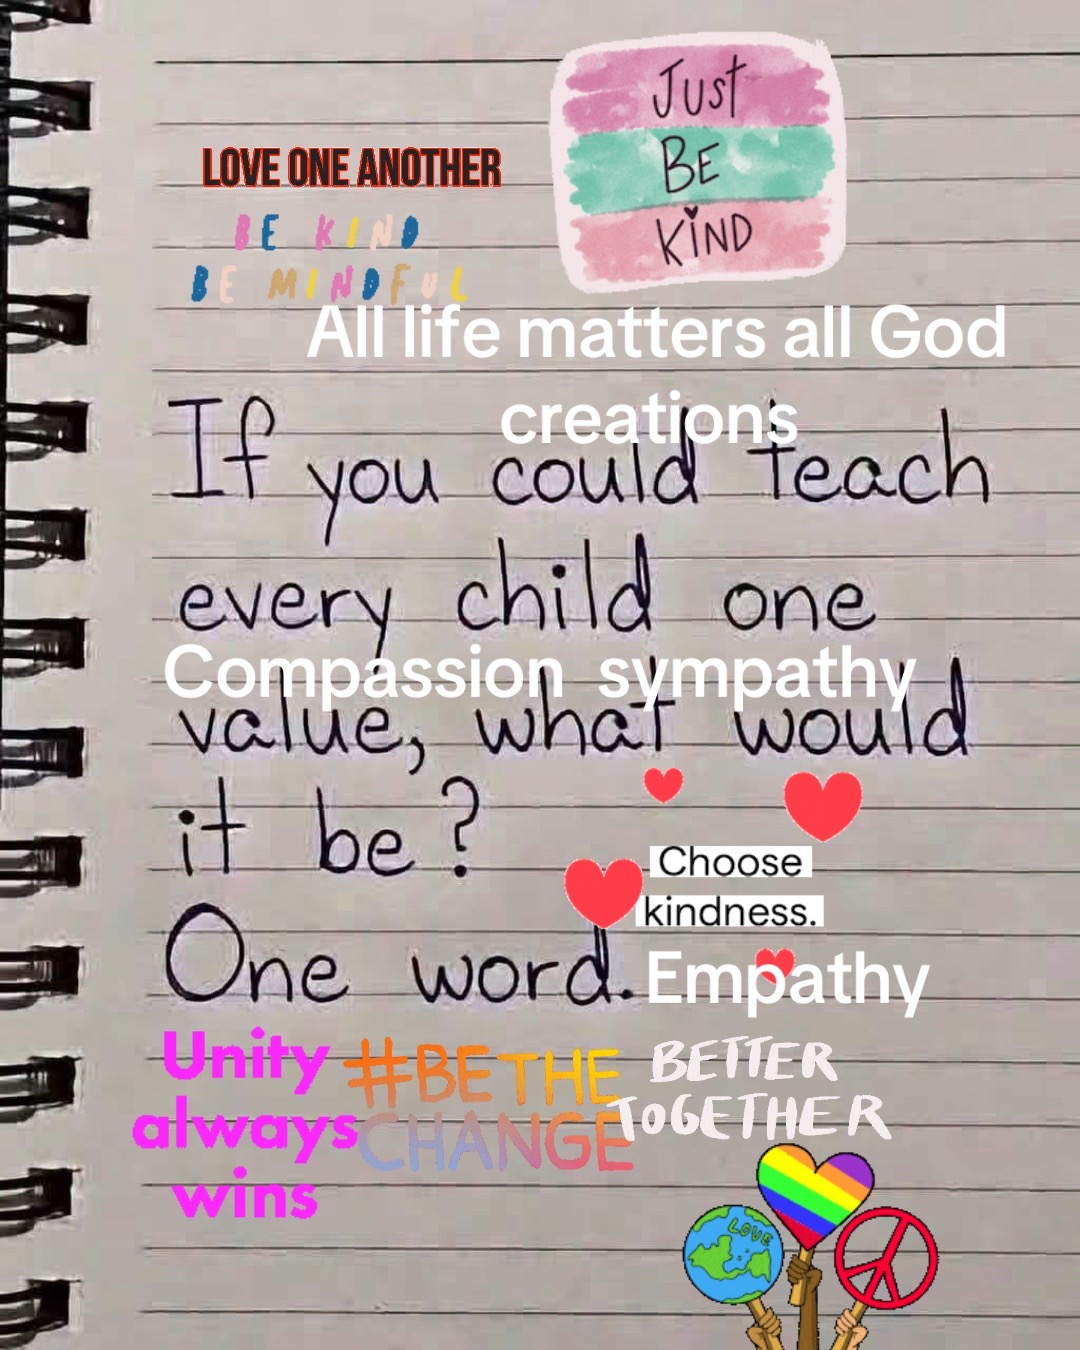 Just
BE
KIND
LOVE ONE ANOTHER
BE KIND
BE MINDFUL
All life matters all God
creations
If you could teach
every child one
Compassion sympathy
value, what would
it be?
Choose
kindness.
One word.
Empathy
Unity
always
wins
#BE THE
CHANGE
BETTER
TOGETHER
LOVE